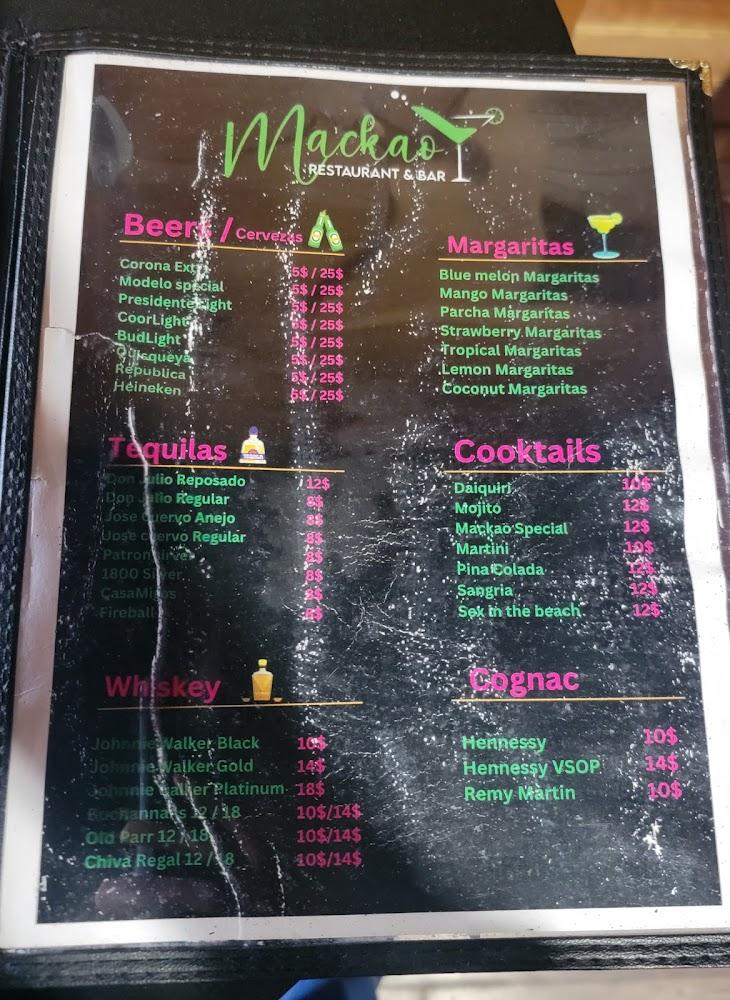 Mackao
RESTAURANT & BAR
Beers / Cervezas
Corona Extra 5$ / 25$
Modelo special 5$ / 25$
Presidente Light 5$ / 25$
CoorLight 5$ / 25$
BudLight 5$ / 25$
Quisqueya 5$ / 25$
Republica 5$ / 25$
Heineken 5$ / 25$
Margaritas
Blue melon Margaritas
Mango Margaritas
Parcha Margaritas
Strawberry Margaritas
Tropical Margaritas
Lemon Margaritas
Coconut Margaritas
Tequilas
Don Julio Reposado 12$
Don Julio Regular 8$
Jose cuervo Anejo 8$
Jose cuervo Regular 8$
Patron silver 8$
1800 Silver 8$
CasaMigos 8$
Fireball 8$
Cooktails
Daiquiri 10$
Mojito 12$
Mackao Special 12$
Martini 10$
Pina Colada 12$
Sangria 12$
Sex in the beach 12$
Whiskey
Johnnie Walker Black 10$
Johnnie Walker Gold 14$
Johnnie walker Platinum 18$
Buchannans 12 / 18 10$/14$
Old Parr 12 / 18 10$/14$
Chiva Regal 12 / 18 10$/14$
Cognac
Hennessy 10$
Hennessy VSOP 14$
Remy Martin 10$